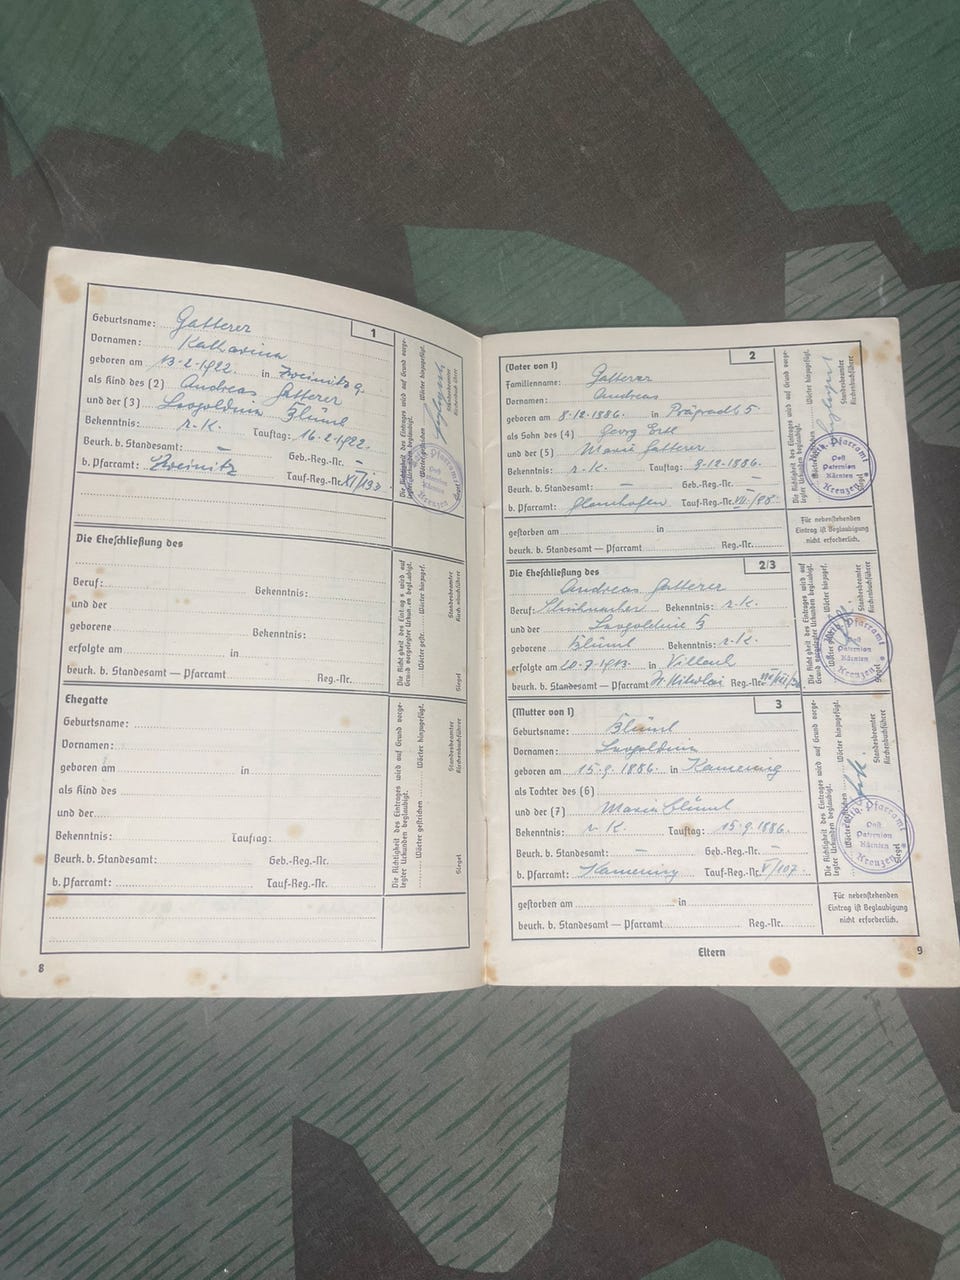 1
Geburtsname: Gatterer
Vornamen: Katharina
geboren am 13-2-1922. in Zweinitz 9.
als Kind des (2) Andreas Gatterer
und der (3) Leopoldina Blüml
Bekenntnis: r.-K. Tauftag: 16-2-1922.
Beurk. b. Standesamt: — Geb.-Reg.-Nr. —
b. Pfarramt: Zweinitz Tauf-Reg.-Nr. XI/193
Die Richtigkeit des Eintrages wird auf Grund vorge-
legter Urkunden beglaubigt.
Wörter gestrichen Wörter hinzugefügt.
Standesbeamter
Kirchenbuchführer
Siegel
Pfarramt
Post
Paternion
Kärnten
Kreuzen
Die Eheschließung des
Beruf: Bekenntnis:
und der
geborene Bekenntnis:
erfolgte am in
beurk. b. Standesamt — Pfarramt Reg.-Nr.
Die Richtigkeit des Eintrages wird auf
Grund vorgelegter Urkunden beglaubigt.
Wörter gestr. Wörter hinzugef.
Standesbeamter
Kirchenbuchführer
Siegel
Ehegatte
Geburtsname:
Vornamen:
geboren am in
als Kind des
und der
Bekenntnis: Tauftag:
Beurk. b. Standesamt: Geb.-Reg.-Nr.
b. Pfarramt: Tauf-Reg.-Nr.
Die Richtigkeit des Eintrages wird auf Grund vorge-
legter Urkunden beglaubigt.
Wörter gestrichen Wörter hinzugefügt.
Standesbeamter
Kirchenbuchführer
Siegel
8
2
(Vater von 1)
Familienname: Gatterer
Vornamen: Andreas
geboren am 8-12-1886. in 5
als Sohn des (4) Georg Ertl
und der (5) Maria Gatterer
Bekenntnis: r.-K. Tauftag: 9-12-1886.
Beurk. b. Standesamt: — Geb.-Reg.-Nr. —
b. Pfarramt: Glanhofen Tauf-Reg.-Nr.
gestorben am in
beurk. b. Standesamt — Pfarramt Reg.-Nr.
Die Richtigkeit des Eintrages wird auf Grund vorge-
legter Urkunden beglaubigt.
Wörter gestrichen Wörter hinzugefügt.
Standesbeamter
Kirchenbuchführer
Siegel
Pfarramt
Post
Paternion
Kärnten
Kreuzen
Für nebenstehenden
Eintrag ist Beglaubigung
nicht erforderlich.
2/3
Die Eheschließung des
Andreas Gatterer
Beruf: Bekenntnis: r.-K.
und der Leopoldine
geborene Blüml Bekenntnis: r.-K.
erfolgte am 1913. in Villach
beurk. b. Standesamt — Pfarramt St. Nikolai Reg.-Nr.
Die Richtigkeit des Eintrages wird auf
Grund vorgelegter Urkunden beglaubigt.
Wörter gestr. Wörter hinzugef.
Standesbeamter
Kirchenbuchführer
Siegel
Pfarramt
Post
Paternion
Kärnten
Kreuzen
3
(Mutter von 1)
Geburtsname: Blüml
Vornamen: Leopoldina
geboren am 15-9-1886. in Kamering
als Tochter des (6)
und der (7) Maria Blüml
Bekenntnis: r-K. Tauftag: 15-9-1886.
Beurk. b. Standesamt: — Geb.-Reg.-Nr. —
b. Pfarramt: Kamering Tauf-Reg.-Nr. V/107.
gestorben am in
beurk. b. Standesamt — Pfarramt Reg.-Nr.
Die Richtigkeit des Eintrages wird auf Grund vorge-
legter Urkunden beglaubigt.
Wörter gestrichen Wörter hinzugefügt.
Standesbeamter
Kirchenbuchführer
Siegel
Pfarramt
Post
Paternion
Kärnten
Kreuzen
Für nebenstehenden
Eintrag ist Beglaubigung
nicht erforderlich.
Eltern
9